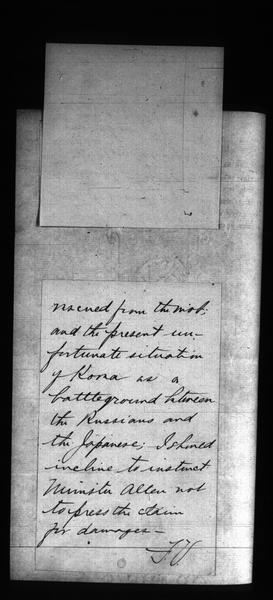 rescued from the mob;
and the present un-
fortunate situation
of Korea as a
battleground between
the Russians and
the Japanese; I should
incline to instruct
Minister Allen not
to press the claim
for damages—